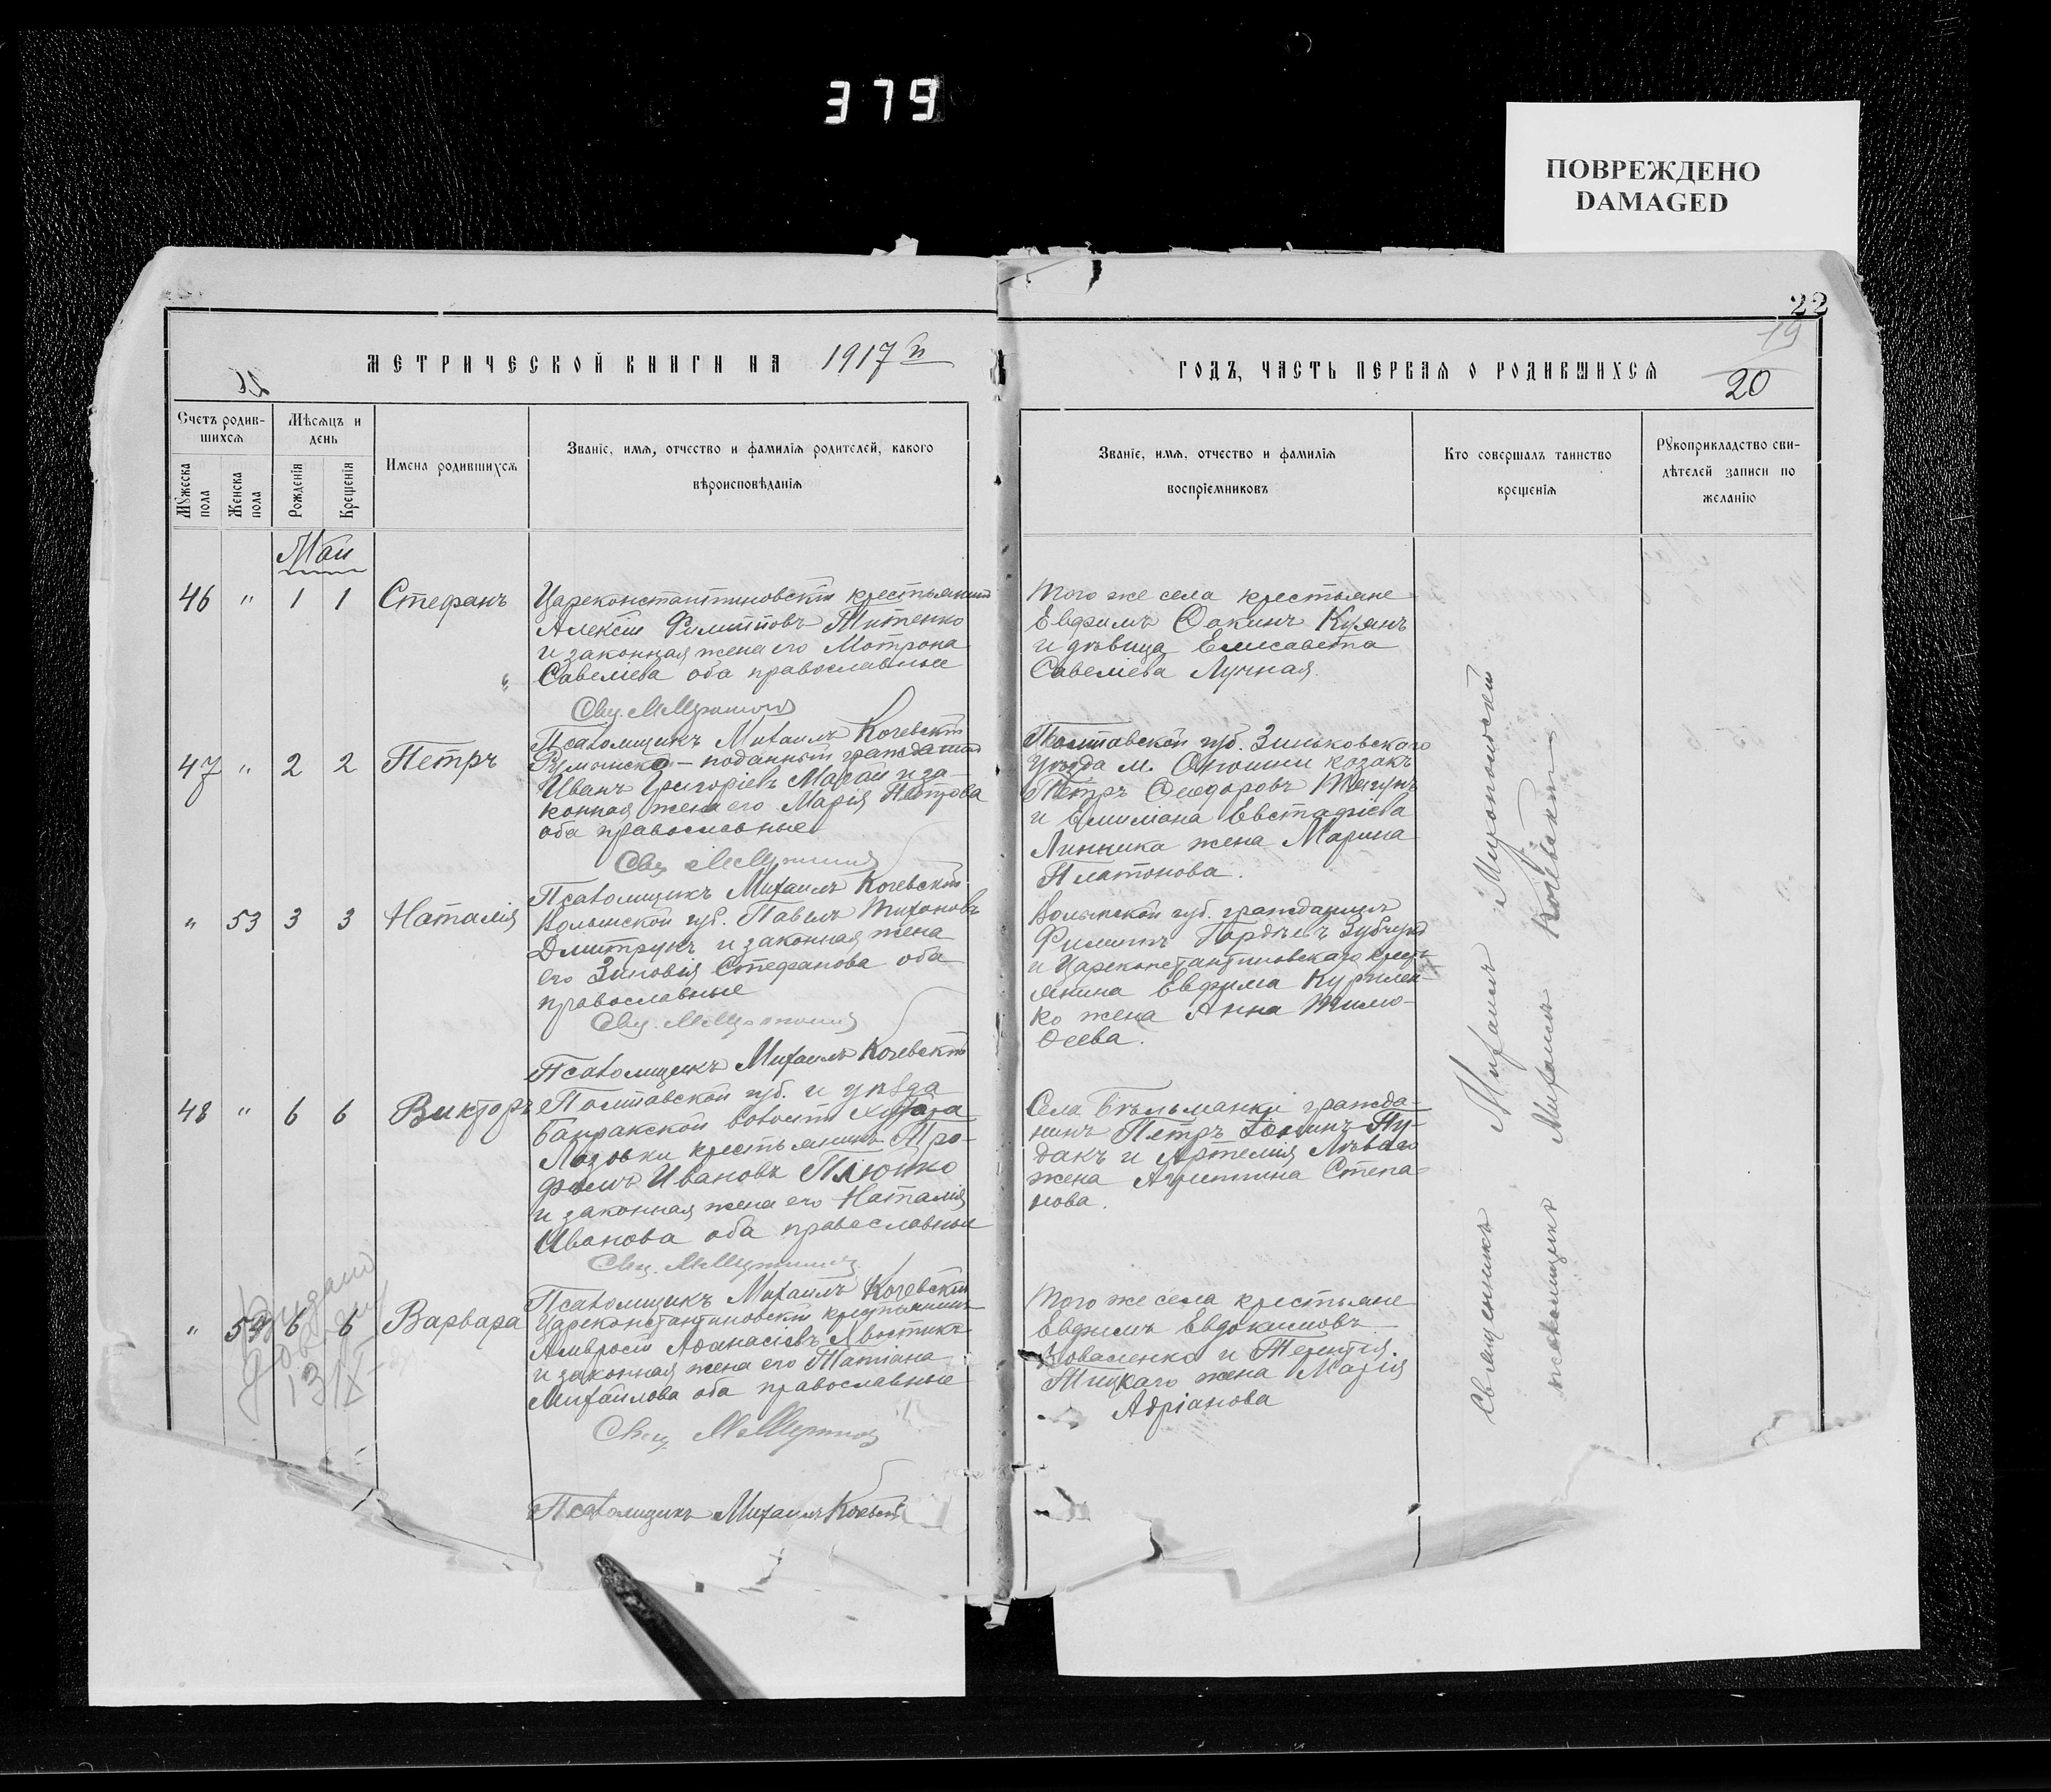 379
ПОВРЕЖДЕНО
DAMAGED
22
19
20
МЕТРИЧЕСКОЙ КНИГИ НА 1917 й
ГОДЪ, ЧАСТЬ ПЕРВАЯ О РОДИВШИХСЯ
Счетъ родив-
шихся
Мѣсяцъ и
день
Имена родившихся
Званіе, имя, отчество и фамилія родителей, какого
вѣроисповѣданія
Мужеска
пола
Женска
пола
Рожденія
Крещенія
Званіе, имя, отчество и фамилія
воспріемниковъ
Кто совершалъ таинство
крещенія
Рукоприкладство сви-
дѣтелей записи по
желанію
Май
46 " 1 1 Стефанъ
Цареконстантиновскій крестьянинъ
Алексій Филипповъ Титенко
и законная жена его Мотрона
Савеліева оба православные
Псаломщикъ Михаилъ Кочевскій
Того же села крестьяне
Евфимъ Куянъ
и дѣвица Елисавета
Савеліева Лучная.
47 " 2 2 Петръ
Румынско-подданный гражданинъ
Иванъ Григоріевъ и за-
конная жена его Марія Петрова
оба православные
Псаломщикъ Михаилъ Кочевскій
Полтавской губ. Зиньковскаго
уѣзда м. Опошни козакъ
Петръ Ѳеодоровъ
и Емиліана Евстафіева
Линника жена Марина
Платонова.
" 53 3 3 Наталія
Волынской губ. Павелъ Тихоновъ
Дмитрукъ и законная жена
его Зиновія Стефанова оба
православные
Псаломщикъ Михаилъ Кочевскій
Волынской губ. гражданинъ
Филиппъ Гордѣевъ
и Цареконстантиновскаго кресть-
янина Евфима Курилен-
ко жена Анна Тимо-
ѳеева.
48 " 6 6 Викторъ
Полтавской губ. и уѣзда
волости хутора
Лозовки крестьянинъ Тро-
фимъ Ивановъ Плюйко
и законная жена его Наталія
Иванова оба православные
Псаломщикъ Михаилъ Кочевскій
Села Бѣльманки гражда-
нинъ Петръ Пу-
дакъ и Артемія
жена Агриппина Степа-
нова.
" 54 6 6 Варвара
Цареконстантиновскій крестьянинъ
Амвросій Аѳанасіевъ Хвостикъ
и законная жена его Татіана
Михайлова оба православные
Псаломщикъ Михаилъ Кочевскій
Того же села крестьяне
Евфимъ Евдокимовъ
Коваленко и Терентія
жена Марія
Адріанова
Священникъ Михаилъ
псаломщикъ Михаилъ Кочевскій